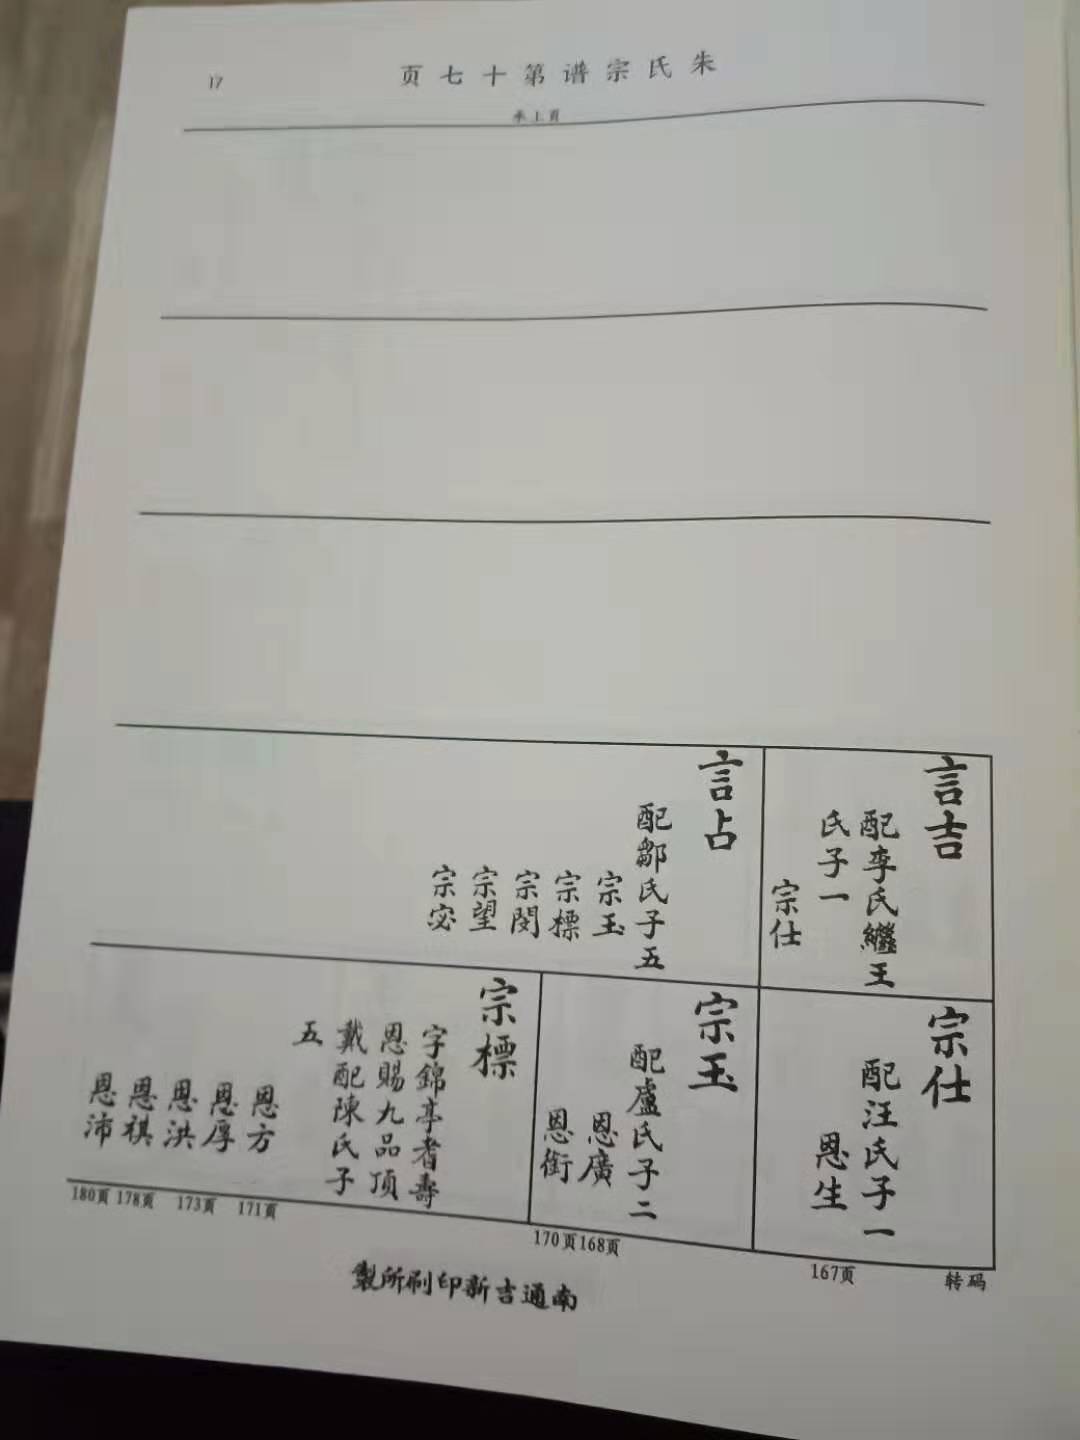 朱氏宗谱第十七页
17
承上頁
言吉
配李氏繼王
氏子一
宗仕
言占
配鄒氏子五
宗玉
宗標
宗閔
宗望
宗宓
宗仕
配汪氏子一
恩生
宗玉
配盧氏子二
恩廣
恩銜
宗標
字錦亭耆壽
恩賜九品頂
戴配陳氏子
五
恩方
恩厚
恩洪
恩祺
恩沛
转码
167页
168页
170页
171页
173页
178页
180页
南通吉新印刷所製